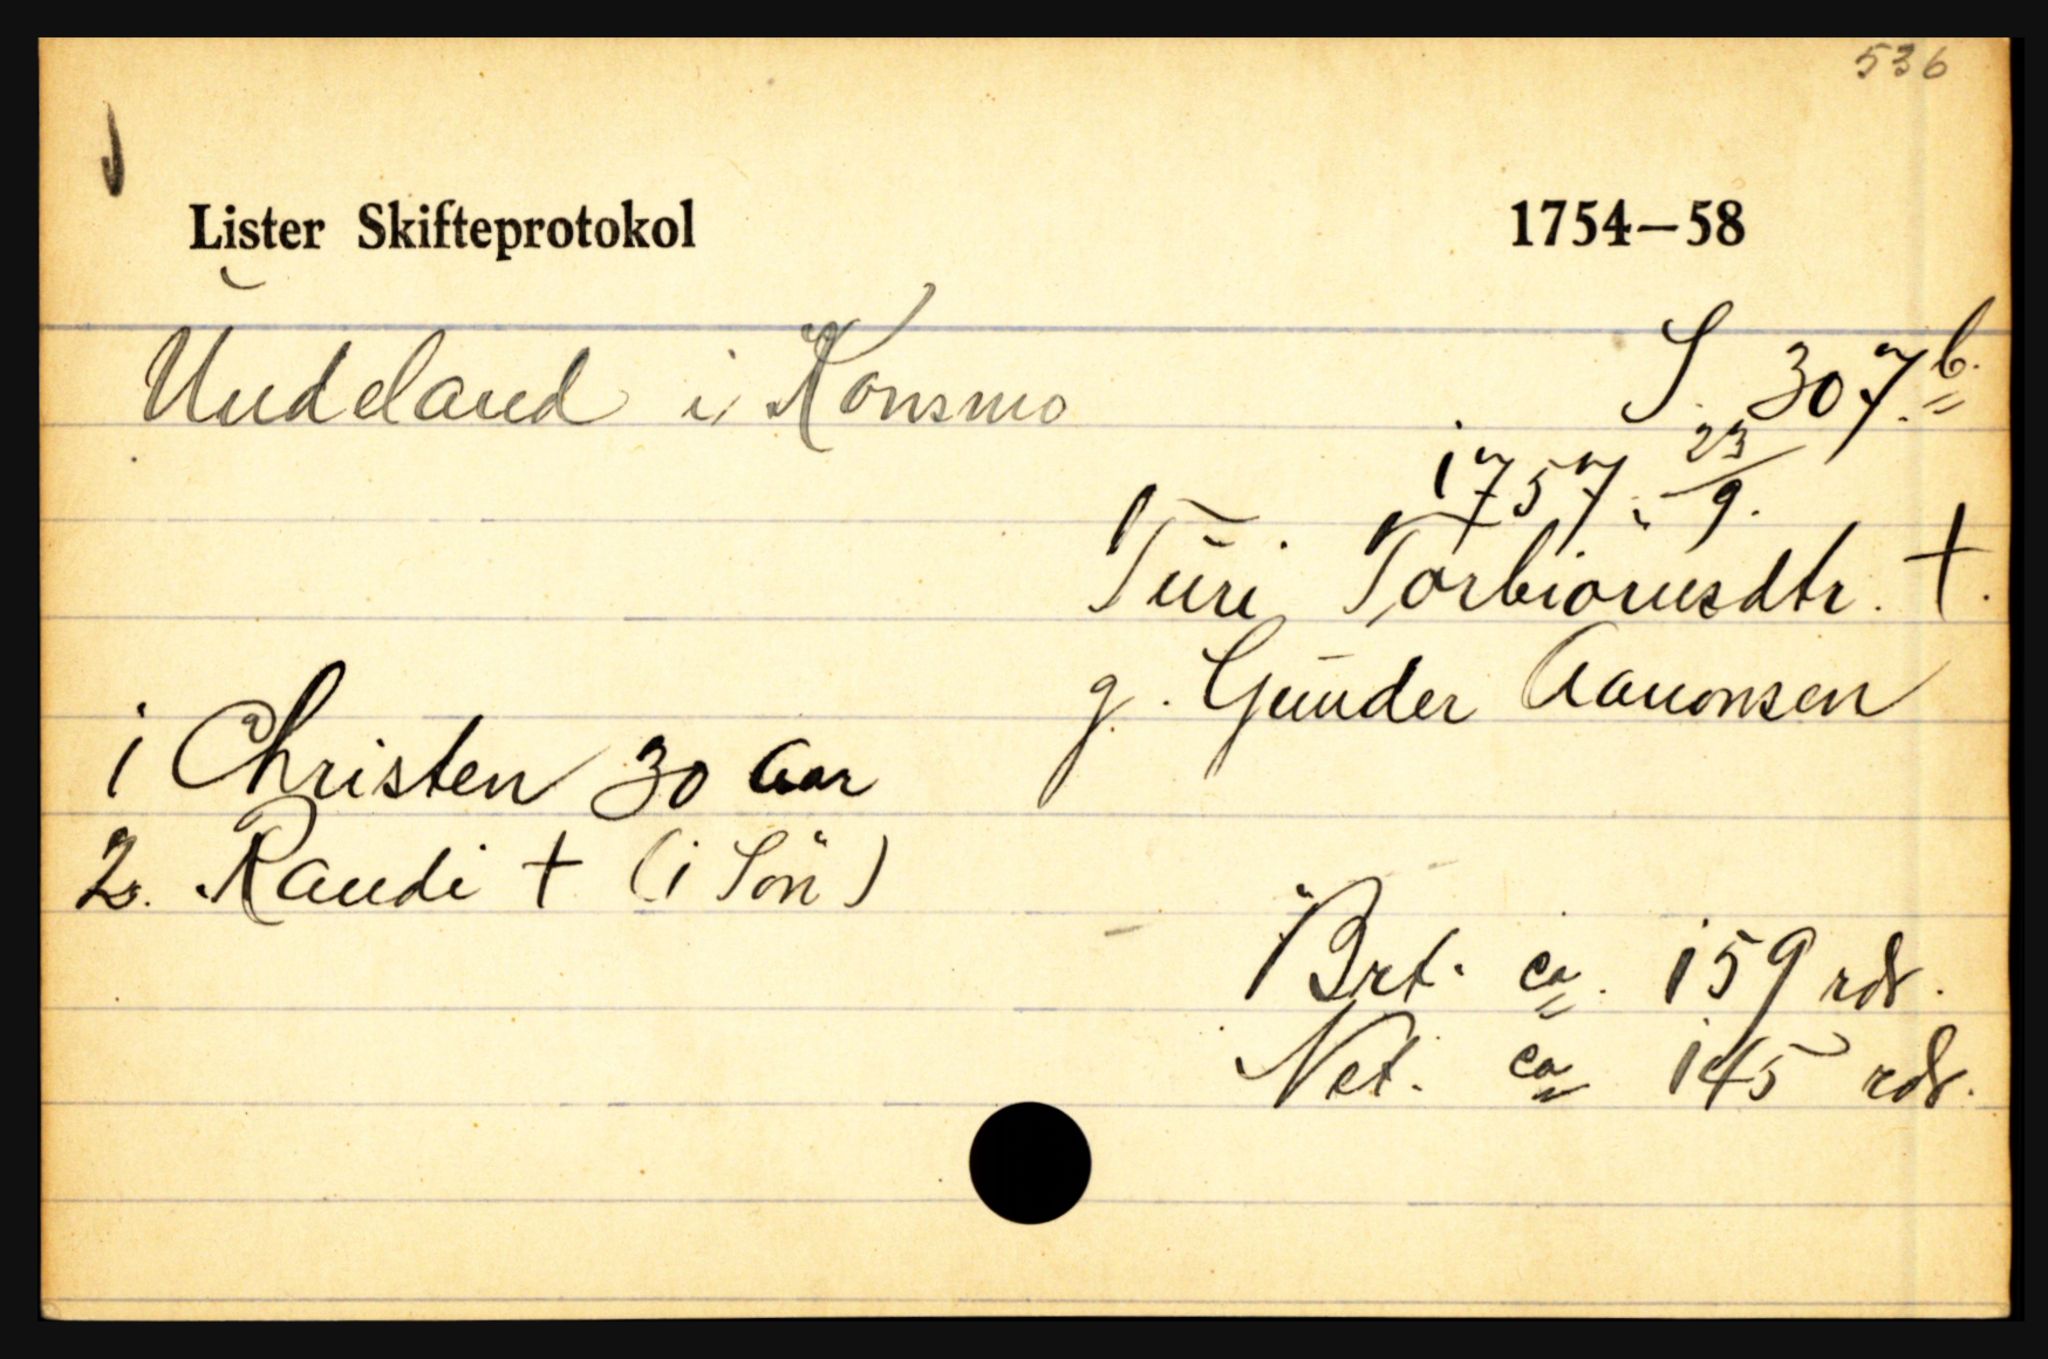 536
Lister Skifteprotokol 1754–58
Uudeland i Konsmo S. 307 b.
1757. 23/9.
Turi Torbiornsdtr. †.
g. Gunder Aanonsen
1 Christen 30 Aar
2. Randi † (1 Sön)
Brt. ca. 159 rdr.
Net. ca 145 rdr.